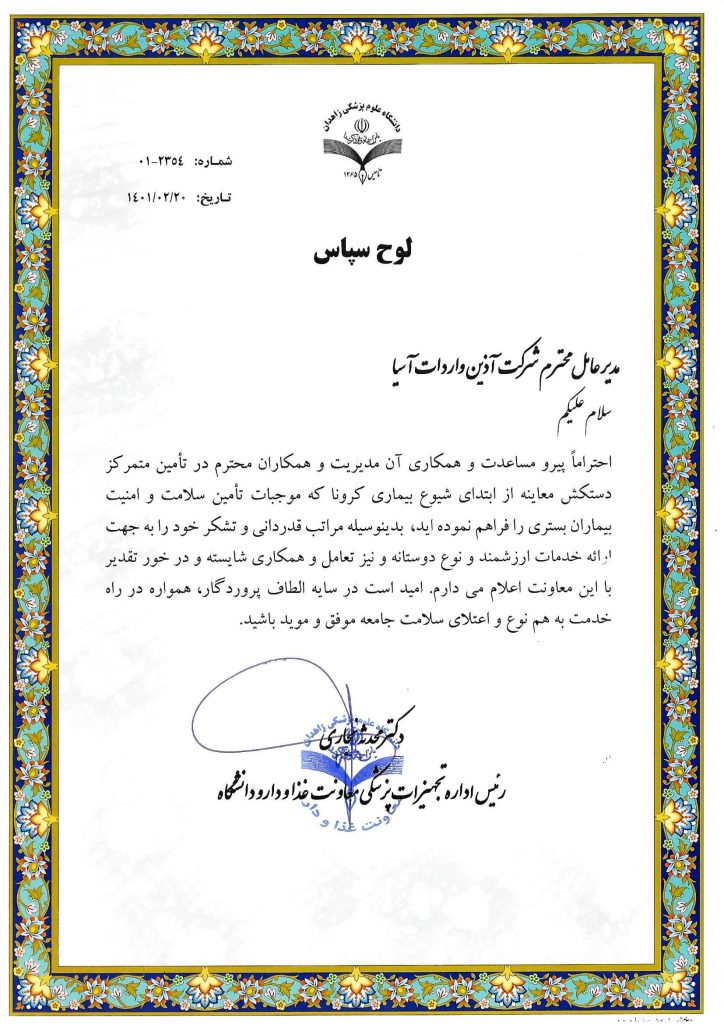 دانشگاه علوم پزشکی زاهدان
تاسیس ۱۳۶۵
شماره: ۲۳۵۴-۰۱
تاریخ: ۱۴۰۱/۰۲/۲۰
لوح سپاس
مدیرعامل محترم شرکت آذین واردات آسیا
سلام علیکم
احتراماً پیرو مساعدت و همکاری آن مدیریت و همکاران محترم در تأمین متمرکز
دستکش معاینه از ابتدای شیوع بیماری کرونا که موجبات تأمین سلامت و امنیت
بیماران بستری را فراهم نموده اید، بدینوسیله مراتب قدردانی و تشکر خود را به جهت
ارائه خدمات ارزشمند و نوع دوستانه و نیز تعامل و همکاری شایسته و در خور تقدیر
با این معاونت اعلام می دارم. امید است در سایه الطاف پروردگار، همواره در راه
خدمت به هم نوع و اعتلای سلامت جامعه موفق و موید باشید.
دکتر
رئیس اداره تجهیزات پزشکی معاونت غذا و دارو دانشگاه
دانشگاه علوم پزشکی زاهدان
معاونت غذا و دارو